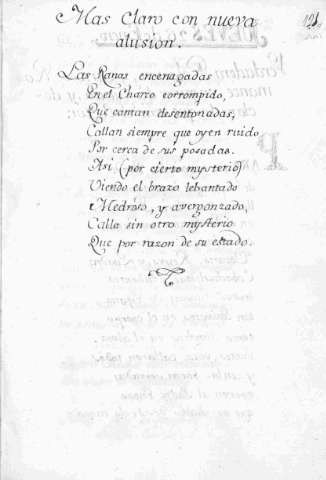 Mas Claro con nueva
alusion.
Las Ranas encenagadas
En el Charco corrompido,
Que cantan desentonadas,
Callan siempre que oyen ruido
Por cerca de sus posadas.
Asi (por cierto mysterio)
Viendo el brazo lebantado
Medroso, y avergonzado,
Calla sin otro mysterio
Que por razon de su estado.